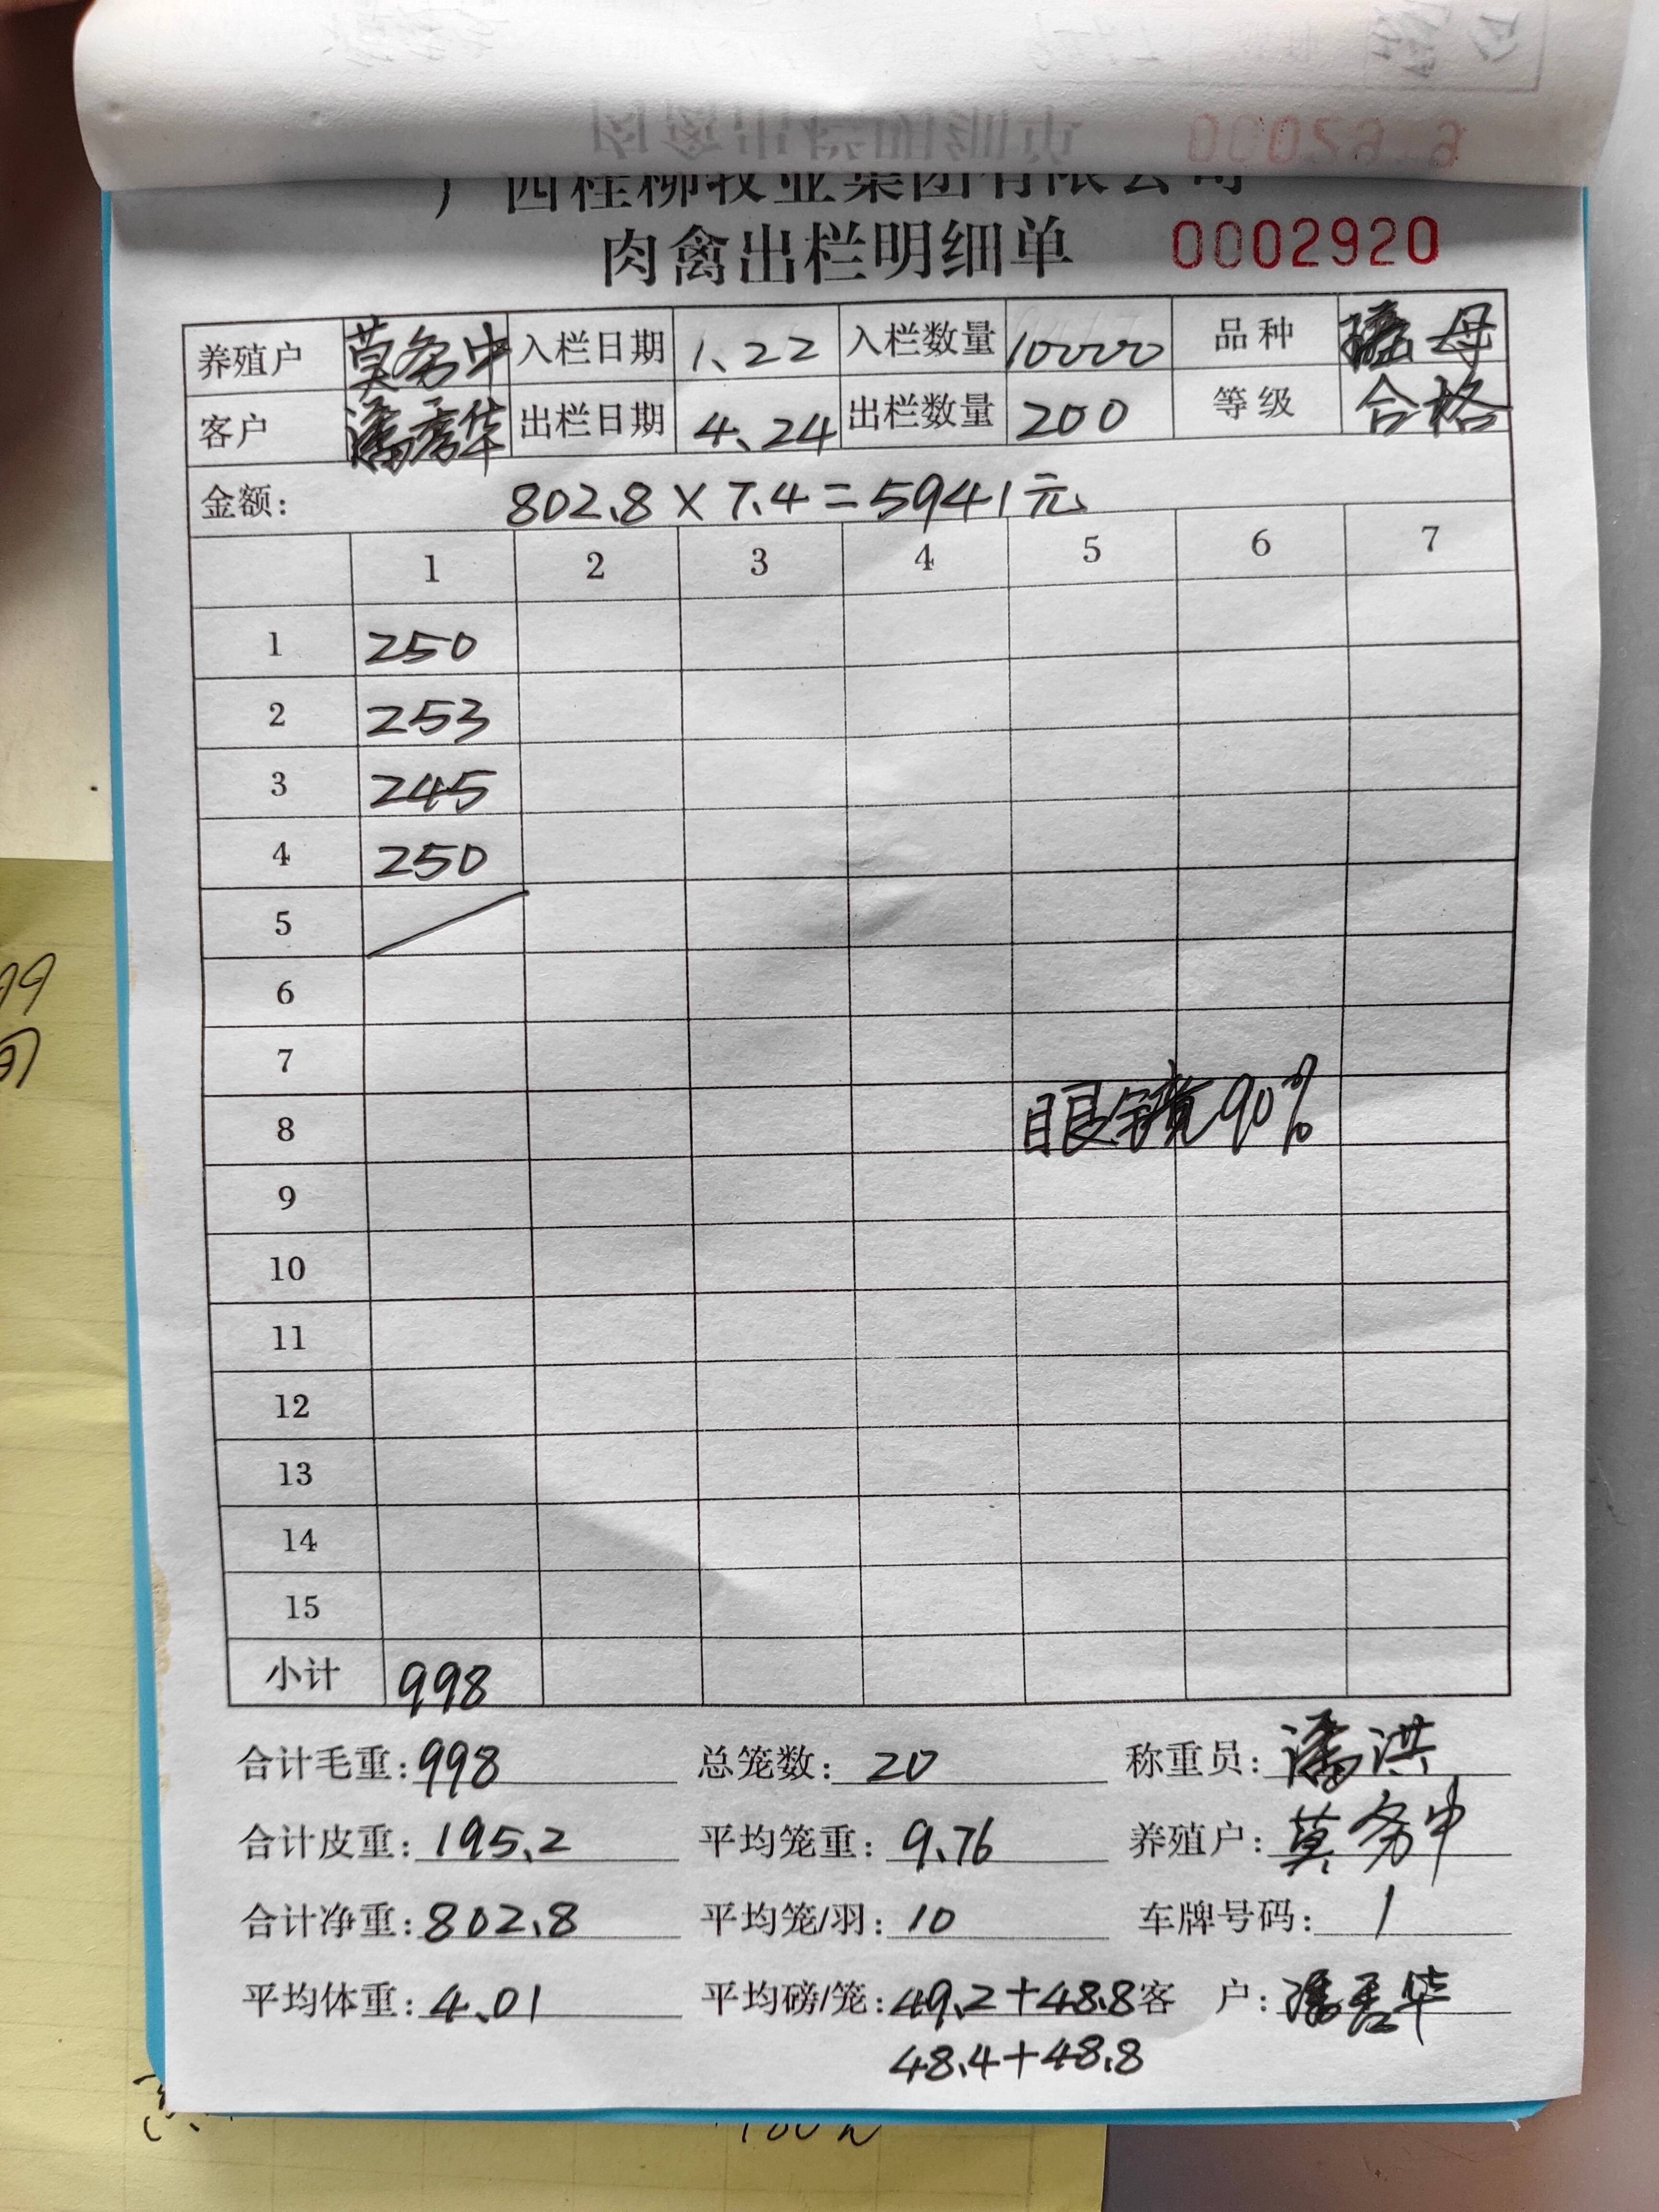 广西桂柳牧业集团有限公司
肉禽出栏明细单 0002920
养殖户 莫务中 入栏日期 1、22 入栏数量 10000 品种 瑶母
客户 潘秀华 出栏日期 4、24 出栏数量 200 等级 合格
金额: 802.8 × 7.4 = 5941元
1 2 3 4 5 6 7
1 250
2 253
3 245
4 250
5
6
7
8 眼镜90%
9
10
11
12
13
14
15
小计 998
合计毛重: 998 总笼数: 20 称重员: 潘洪
合计皮重: 195.2 平均笼重: 9.76 养殖户: 莫务中
合计净重: 802.8 平均笼/羽: 10 车牌号码: 1
平均体重: 4.01 平均磅/笼: 49.2+48.8 客 户: 潘秀华
48.4+48.8